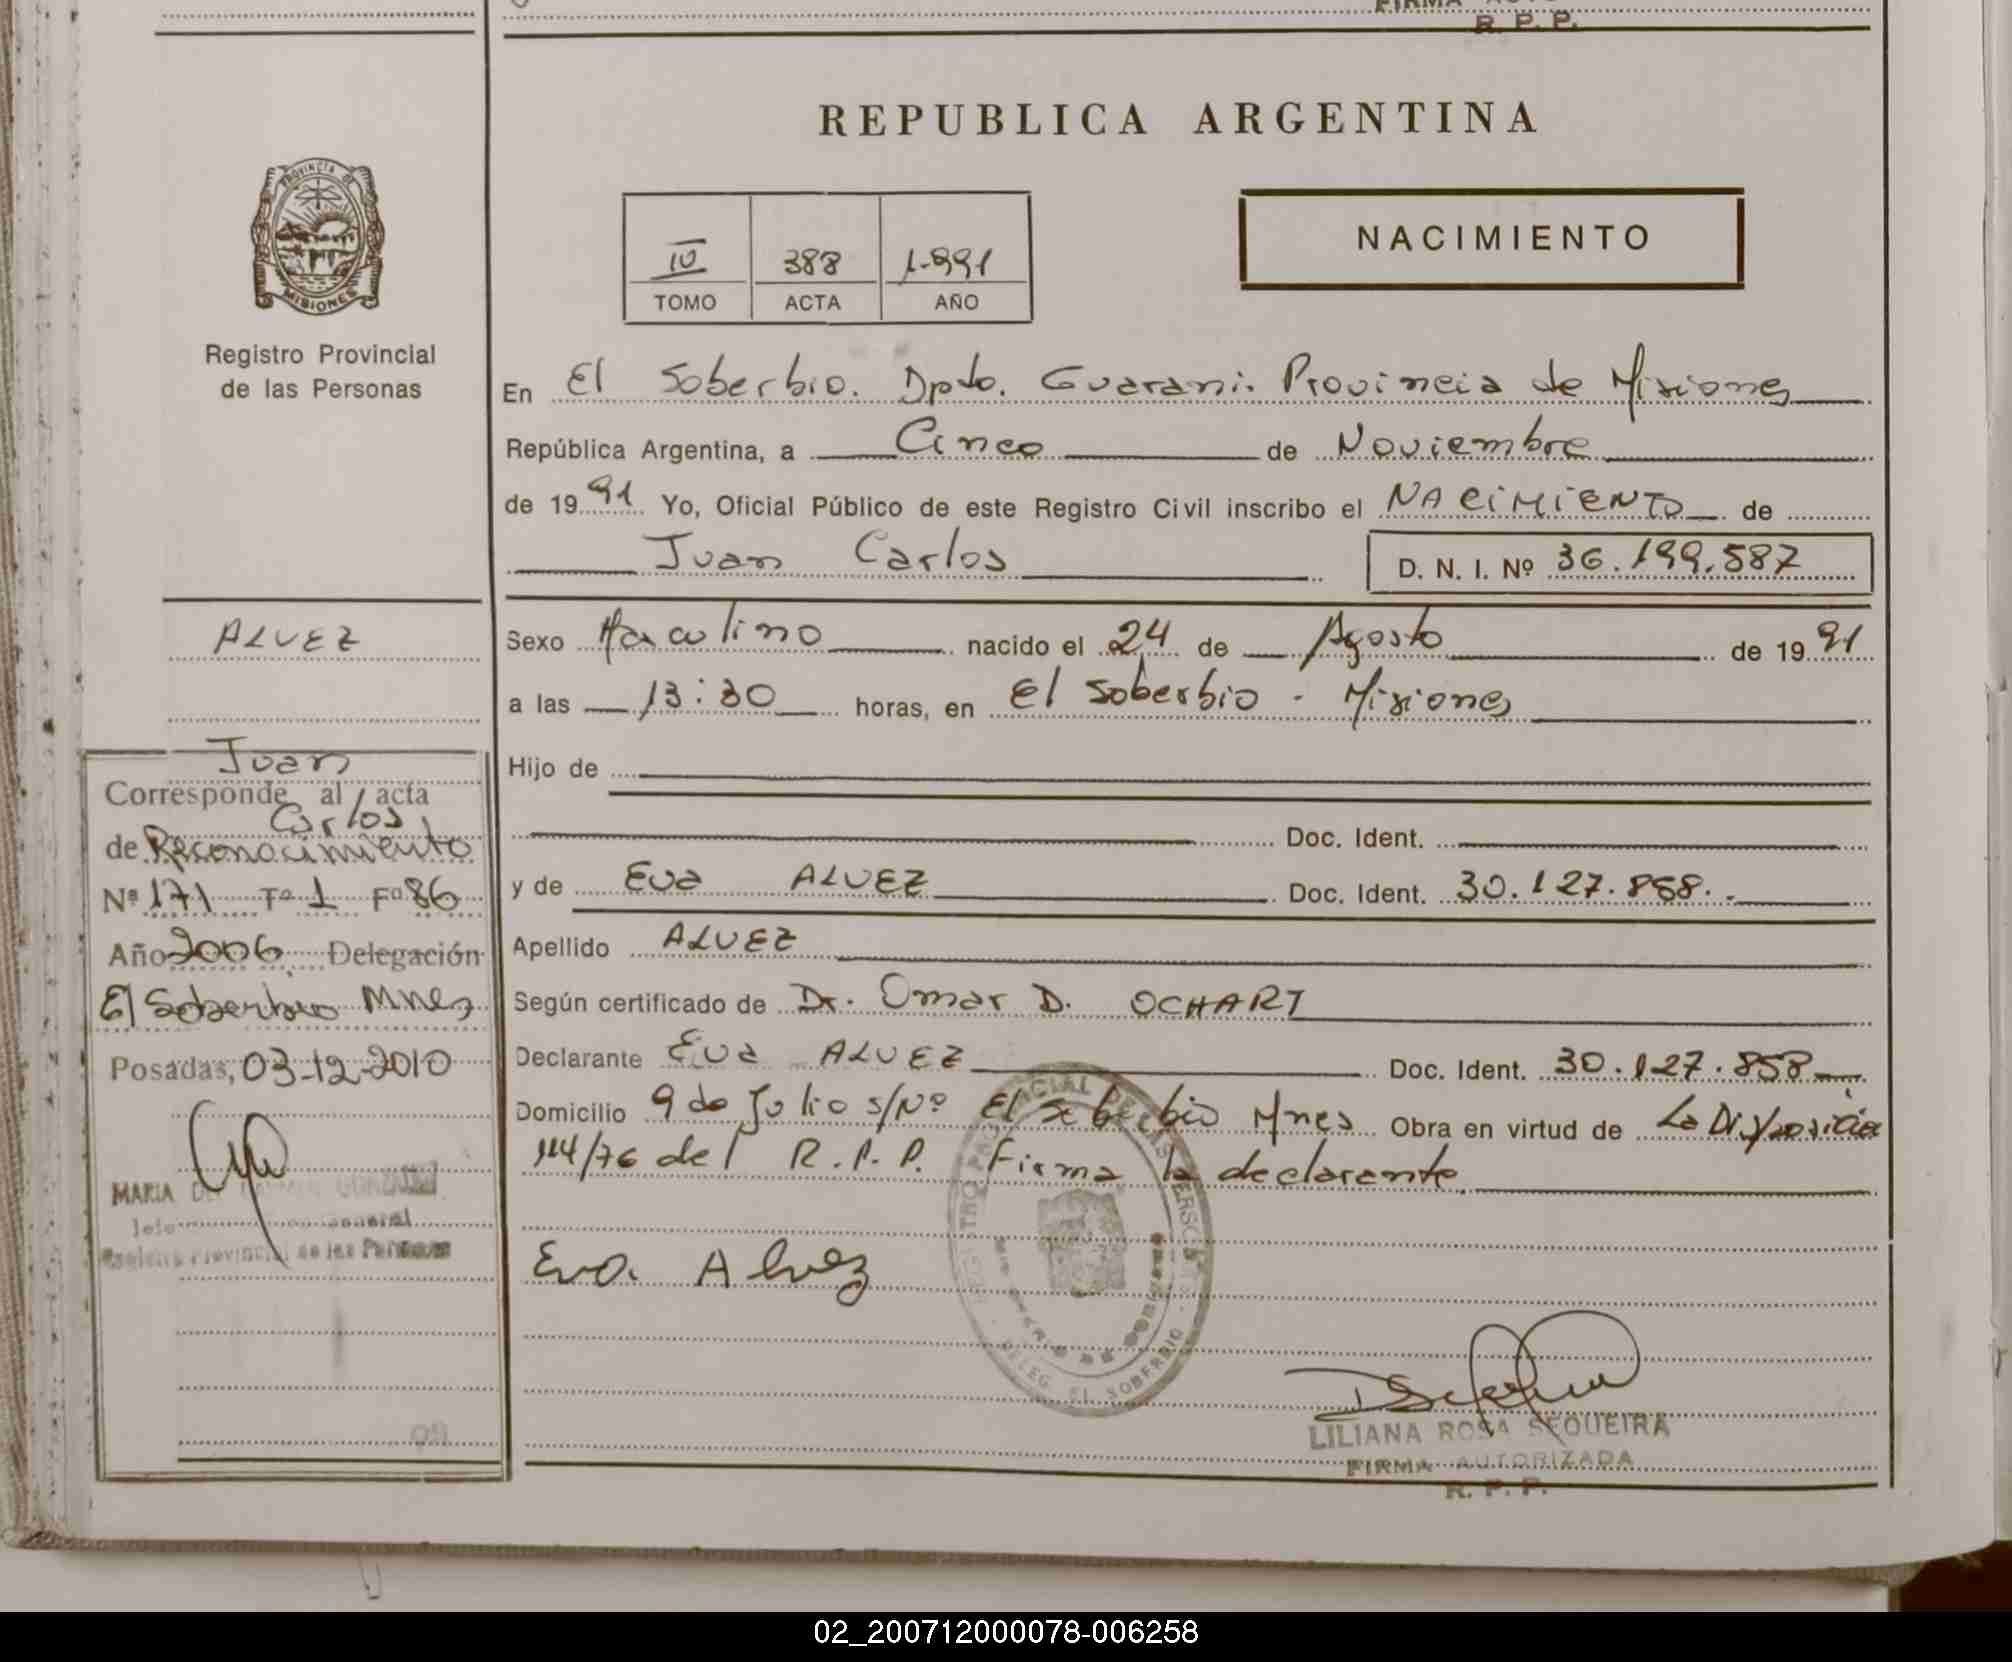 R. P. P.
REPUBLICA ARGENTINA
PROVINCIA DE
MISIONES
Registro Provincial
de las Personas
IV 388 1-991
TOMO ACTA AÑO
NACIMIENTO
En El Soberbio. Dpto. Guarani. Provincia de Misiones
República Argentina, a Cinco de Noviembre
de 1991 Yo, Oficial Público de este Registro Civil inscribo el NACIMIENTO de
Juan Carlos D. N. I. Nº 36.199.587
Sexo Masculino nacido el 24 de Agosto de 1991
a las 13:30 horas, en El Soberbio - Misiones
Hijo de
Doc. Ident.
y de Eva ALVEZ Doc. Ident. 30.127.858.-
Apellido ALVEZ
Según certificado de Dr. Omar D. OCHART
Declarante Eva ALVEZ Doc. Ident. 30.127.858
Domicilio 9 de Julio s/Nº El Soberbio Mnes Obra en virtud de La Disposición
114/76 del R.P.P. Firma la declarante
Eva Alvez
DELEG. EL SOBERBIO
LILIANA ROSA SEQUEIRA
FIRMA AUTORIZADA
R. P. P.
ALVEZ
Juan
Carlos
Corresponde al acta
de Reconocimiento
Nº 171 Tº 1 Fº 86
Año 2006 Delegación
El Soberbio Mnes
Posadas, 03-12-2010
MARIA DEL CARMEN
Registro Provincial de las Personas
02_200712000078-006258